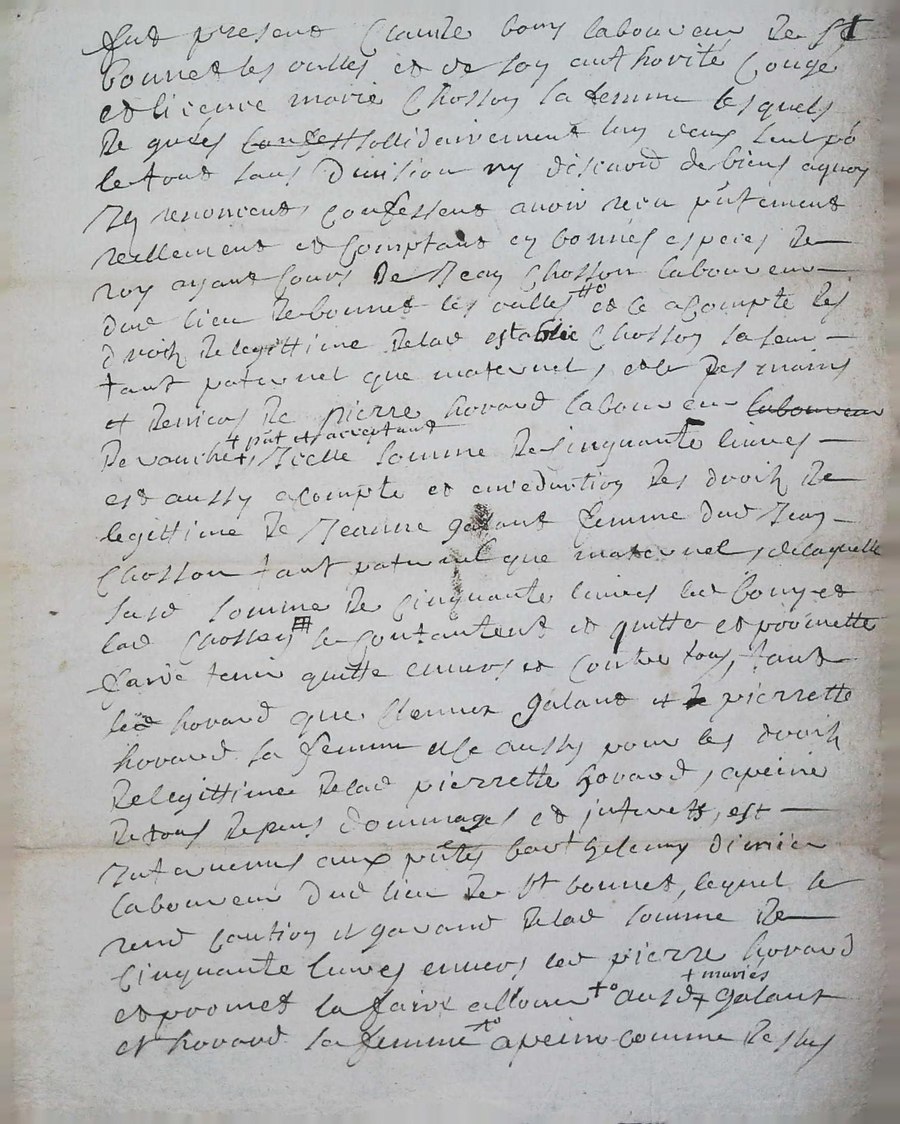 fut present Claude bony laboureur de st
bonnet les oulles et de son authorité Conge
et licence marie Chosson sa femme lesquels
de grées sollidairement lun deux seul pō
le tout sans division ny discution de biens aquoy
Ils renoncent, Confessent avoir receu pn̄tement
reellement et Comptant en bonnes especes de
roy ayant Cours de Jean Chosson laboureur
dud lieu de bonnet les oulles et ce acompte des
droits de legittime de lad establie Chosson sa seur
tant paternel que maternel, et des mains
et deniers de pierre hovard laboureur laboureur
de vauche + pn̄t et acceptant Icelle somme de sinquante livres
est aussy acompte et en reduction des droits de
legittime de Jeanne galant femme dud Jean
Chosson tant paternel que maternel, de laquelle
susd somme de Cinquante livres led bony et
lad Chosson se Contantent et quitte et promette
faire tenir quitte envers et contre tous, tant
led hovard que galant et pierrette
hovard sa femme aussy pour les droits
de legittime de lad pierrette hovard, apeine
de tous depens dommages et interets, est
Intervenus aux pn̄tes
laboureur dud lieu de st bonnet, lequel se
rend Caution et garand de lad somme de
Cinquante livres envers led pierre hovard
et promet la faire allouer ausd + mariés galant
et hovard sa femme apeine comme dessus